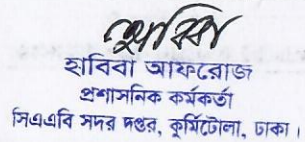 হাবিবা আফরোজ
প্রশাসনিক কর্মকর্তা
সিএএবি সদর দপ্তর, কুর্মিটোলা, ঢাকা।